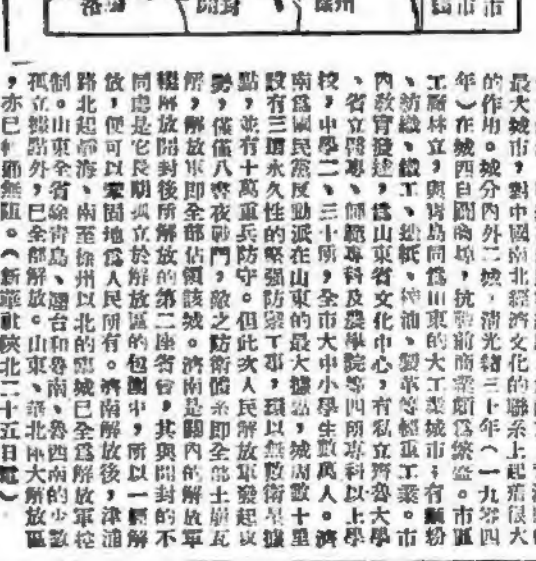 洛陽
開封
徐州
市市
最大城市,對中國南北經濟文化的聯系上起着很大
的作用。城分內外二城,清光緒三十年(一九零四
年)在城西自闢商埠,抗戰前商業頗爲繁盛。市區
工廠林立,與靑島同爲山東的大工業城市;有麵粉
、紡織、鐵工、造紙、榨油、製革等輕重工業。市
內敎育發達,爲山東省文化中心,有私立齊魯大學
、省立醫專、師範專科及農學院等四所專科以上學
校,中學二、三十所,全市大中小學生數萬人。濟
南爲國民黨反動派在山東的最大據點,城周數十里
設有三道永久性的堅强防禦工事,環以無數衛星據
點,並有十萬重兵防守。但此次人民解放軍發起攻
勢,僅僅八晝夜戰鬥,敵之防衛體系卽全部土崩瓦
解,解放軍卽全部佔領該城。濟南是關內的解放軍
繼解放開封後所解放的第二座省會,其與開封的不
同處是它長期孤立於解放區的包圍中,所以一經解
放,便可以鞏固地爲人民所有。濟南解放後,津浦
路北起靜海、南至徐州以北的臨城已全爲解放軍控
制。山東全省除靑島、煙台和魯南、魯西南的少數
孤立據點外,已全部解放。山東、華北兩大解放區
,亦已暢通無阻。(新華社陝北二十五日電)